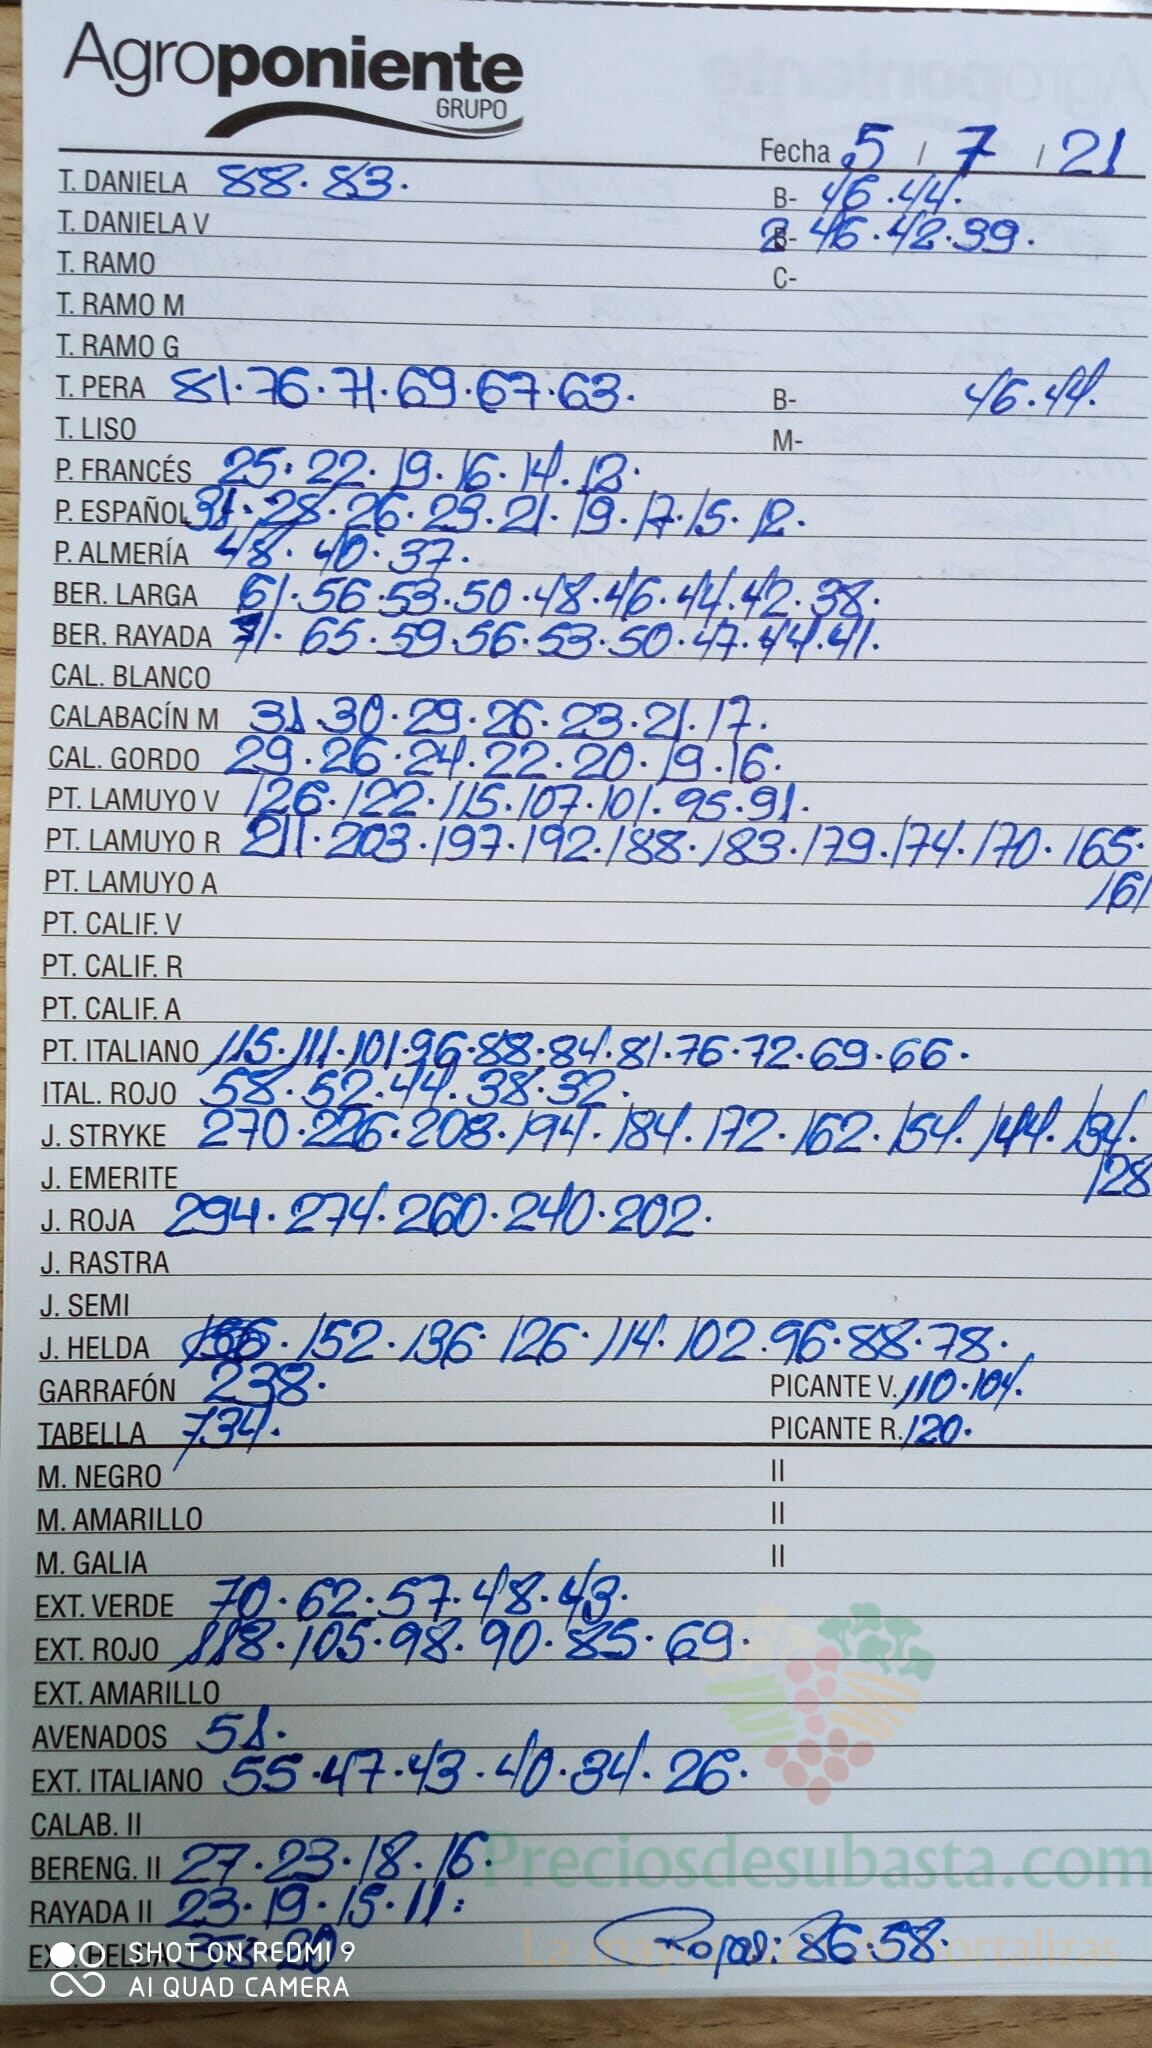 Agroponiente
GRUPO
Fecha 5 / 7 / 21
T. DANIELA 88. 83. B- 46.44.
T. DANIELA V 2 B- 46.42.39.
T. RAMO C-
T. RAMO M
T. RAMO G
T. PERA 81.76.71.69.67.63. B- 46.44.
T. LISO M-
P. FRANCÉS 25. 22. 19. 16. 14. 12.
P. ESPAÑOL 31. 28. 26. 23. 21. 19. 17. 15. 12.
P. ALMERÍA 48. 40. 37.
BER. LARGA 61.56.53.50.48.46.44.42.38.
BER. RAYADA 71. 65.59.56.53.50.47.44.41.
CAL. BLANCO
CALABACÍN M 31.30.29.26.23.21.17.
CAL. GORDO 29.26.24.22.20.19.16.
PT. LAMUYO V 126.122.115.107.101.95.91.
PT. LAMUYO R 211.203.197.192.188.183.179.174.170.165.
PT. LAMUYO A 161
PT. CALIF. V
PT. CALIF. R
PT. CALIF. A
PT. ITALIANO 115.111.101.96.88.84.81.76.72.69.66.
ITAL. ROJO 58.52.44.38.32.
J. STRYKE 270.226.208.194.184.172.162.154.144.134.
J. EMERITE 128
J. ROJA 294.274.260.240.202.
J. RASTRA
J. SEMI
J. HELDA 152.136.126.114.102.96.88.78.
GARRAFÓN 238. PICANTE V. 110.104.
TABELLA 734. PICANTE R. 120.
M. NEGRO II
M. AMARILLO II
M. GALIA II
EXT. VERDE 70.62.57.48.43.
EXT. ROJO 118.105.98.90.85.69.
EXT. AMARILLO
AVENADOS 51.
EXT. ITALIANO 55.47.43.40.34.26.
CALAB. II
BERENG. II 27.23.18.16.
Preciosdesubasta.com
RAYADA II 23.19.15.11.
EXT. HELDA 20 Rojas: 86.58.
SHOT ON REDMI 9
AI QUAD CAMERA